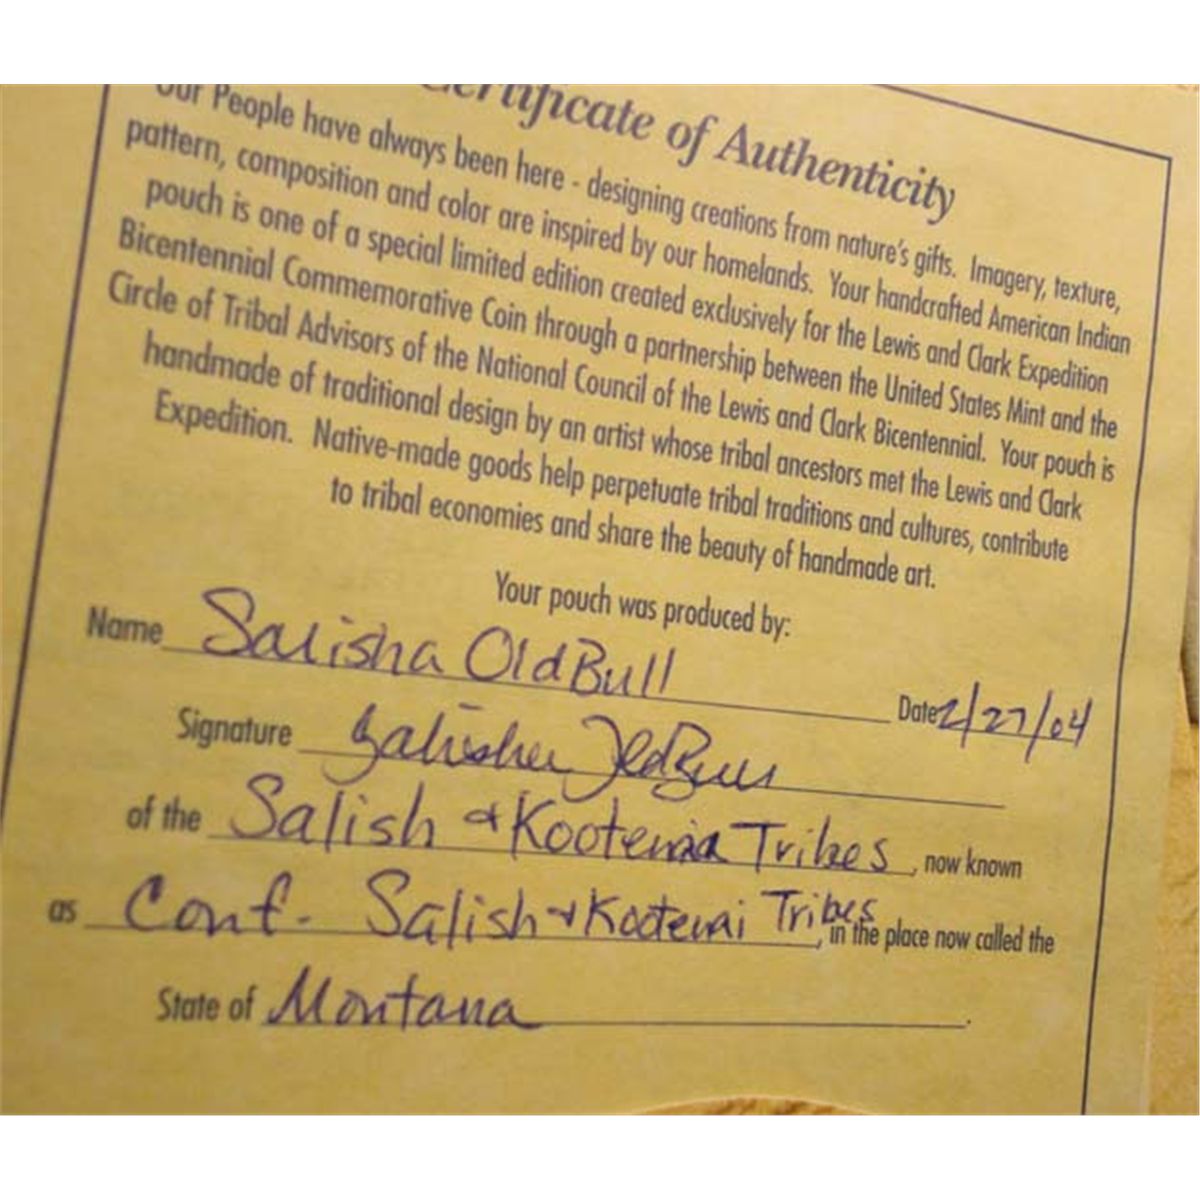 Certificate of Authenticity
Our People have always been here - designing creations from nature's gifts. Imagery, texture,
pattern, composition and color are inspired by our homelands. Your handcrafted American Indian
pouch is one of a special limited edition created exclusively for the Lewis and Clark Expedition
Bicentennial Commemorative Coin through a partnership between the United States Mint and the
Circle of Tribal Advisors of the National Council of the Lewis and Clark Bicentennial. Your pouch is
handmade of traditional design by an artist whose tribal ancestors met the Lewis and Clark
Expedition. Native-made goods help perpetuate tribal traditions and cultures, contribute
to tribal economies and share the beauty of handmade art.
Your pouch was produced by:
Name Salisha OldBull Date 2/27/04
Signature Salisha OldBull
of the Salish & Kootenai Tribes, now known
as Conf. Salish & Kootenai Tribes, in the place now called the
State of Montana.